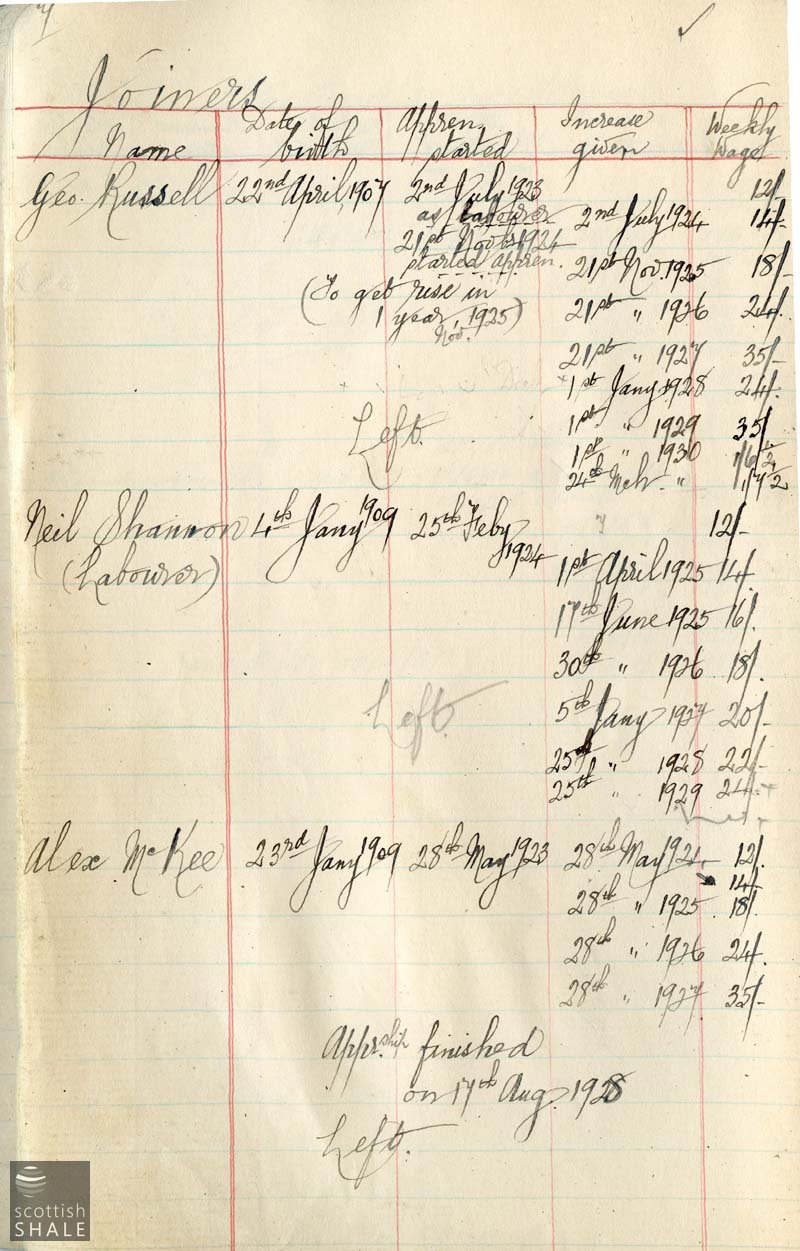 Joiners
Name Date of birth Appren. started Increase given Weekly Wage
Geo. Russell 22nd April, 1907 2nd July 1923 12/-
as labourer 2nd July 1924 14/-
21st Novbr 1924
started appren. 21st Nov. 1925 18/-
(To get rise in
1 year, 1925) 21st " 1926 24/-
Nov.
21st " 1927 35/-
1st Jany 1928 24/-
Left. 1st " 1929 35/-
1st " 1930 1/6½
24th Mch. " 1/7½
Neil Shannon 4th Jany 1909 25th Feby 1924 12/-
(Labourer) 1st April 1925 14/-
17th June 1925 16/-
30th " 1926 18/-
Left. 5th Jany 1927 20/-
25th " 1928 22/-
25th " 1929 24/-
Alex McKee 23rd Jany 1909 28th May 1923 28th May 1924 12/-
14/-
28th " 1925 18/-
28th " 1926 24/-
28th " 1927 35/-
Appr.ship finished
on 17th Aug. 1928
Left.
scottish
SHALE